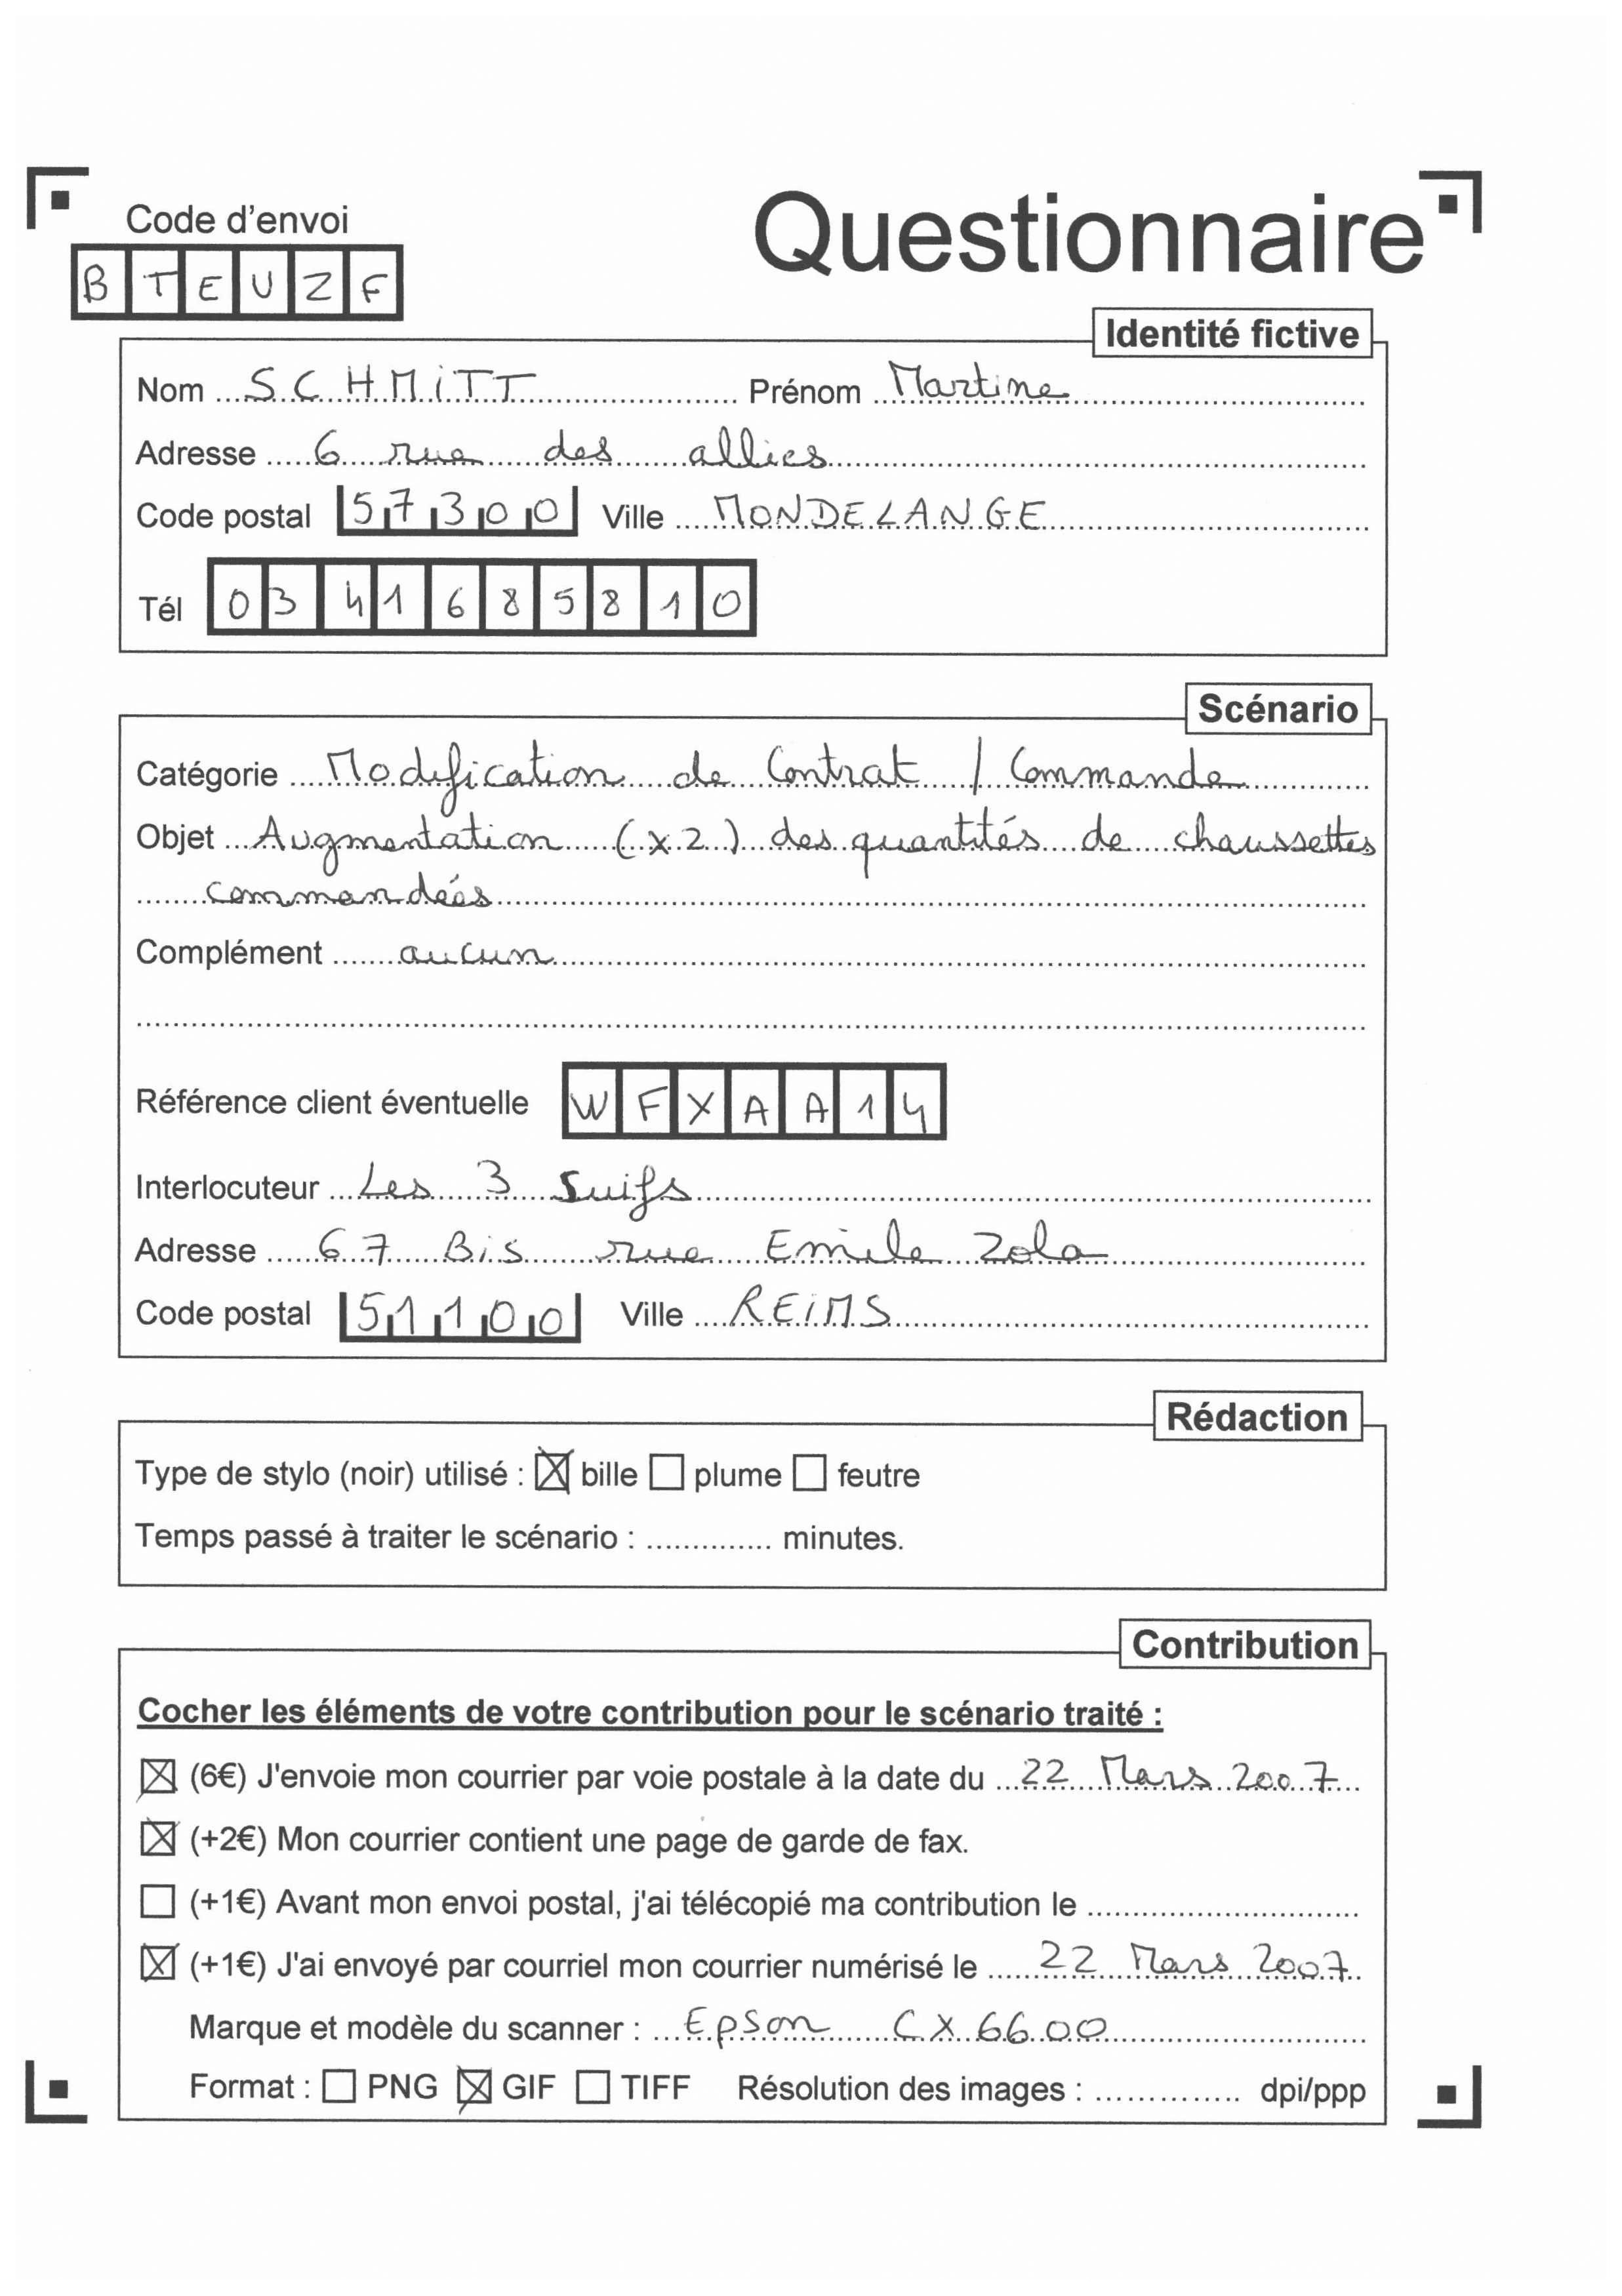 Code d'envoi
Questionnaire
BTEUZF
Identité fictive
Nom SCHMITT Prénom Martine
Adresse 6 rue des allies
Code postal 57300 Ville MONDELANGE
Tél 0341685810
Scénario
Catégorie Modification de Contrat / Commande
Objet Augmentation (x2) des quantités de chaussettes
commandées
Complément aucun
Référence client éventuelle WFXAA14
Interlocuteur Les 3 Suifs
Adresse 67 Bis rue Emile Zola
Code postal 51100 Ville REIMS
Rédaction
Type de stylo (noir) utilisé : ☒ bille ☐ plume ☐ feutre
Temps passé à traiter le scénario : .............. minutes.
Contribution
Cocher les éléments de votre contribution pour le scénario traité :
☒ (6€) J'envoie mon courrier par voie postale à la date du 22 Mars 2007
☒ (+2€) Mon courrier contient une page de garde de fax.
☐ (+1€) Avant mon envoi postal, j'ai télécopié ma contribution le ..............
☒ (+1€) J'ai envoyé par courriel mon courrier numérisé le 22 Mars 2007
Marque et modèle du scanner : Epson CX 6600
Format : ☐ PNG ☒ GIF ☐ TIFF Résolution des images : .............. dpi/ppp